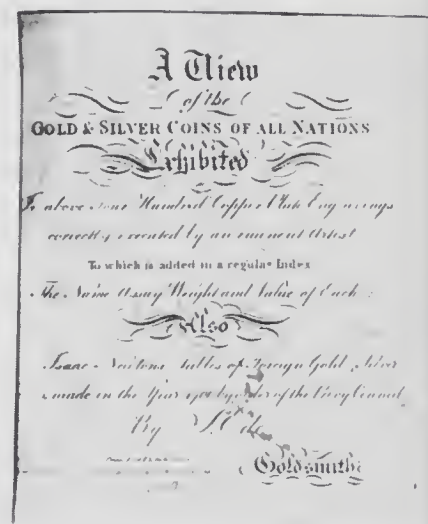 A View
of the
GOLD & SILVER COINS OF ALL NATIONS
Exhibited
above Hundred Copper Plate Engravings
correctly executed by an eminent Artist
To which is added in a regular Index
The Name Assay Weight and Value of Each
Also
Isaac Newtons tables of Foreign Gold Silver
made in the Year by order of the Privy Council
By
Goldsmith